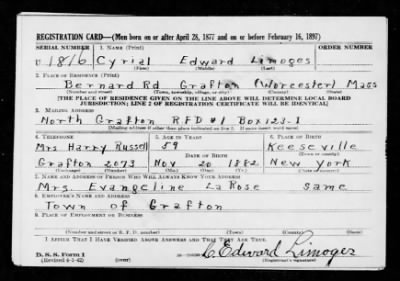 REGISTRATION CARD—(Men born on or after April 28, 1877 and on or before February 16, 1897)
SERIAL NUMBER 1. NAME (Print) ORDER NUMBER
U 1816 Cyrial Edward Limoges
(First) (Middle) (Last)
2. PLACE OF RESIDENCE (Print)
Bernard Rd Grafton (Worcester) Mass
(Number and street) (Town, township, village, or city) (County) (State)
[THE PLACE OF RESIDENCE GIVEN ON THE LINE ABOVE WILL DETERMINE LOCAL BOARD
JURISDICTION; LINE 2 OF REGISTRATION CERTIFICATE WILL BE IDENTICAL]
3. MAILING ADDRESS
North Grafton RFD #1 Box 123-1
[Mailing address if other than place indicated on line 2. If same insert word same]
4. TELEPHONE 5. AGE IN YEARS 6. PLACE OF BIRTH
Mrs Harry Russell 59 Keeseville
DATE OF BIRTH (Town or county)
Grafton 2073 Nov 20 1882 New York
(Exchange) (Number) (Mo.) (Day) (Yr.) (State or country)
7. NAME AND ADDRESS OF PERSON WHO WILL ALWAYS KNOW YOUR ADDRESS
Mrs. Evangeline LaRose Same
8. EMPLOYER'S NAME AND ADDRESS
Town of Grafton
9. PLACE OF EMPLOYMENT OR BUSINESS
(Number and street or R. F. D. number) (Town) (County) (State)
I AFFIRM THAT I HAVE VERIFIED ABOVE ANSWERS AND THAT THEY ARE TRUE.
D. S. S. Form 1
(Revised 4-1-42) C. Edward Limoges
(Registrant's signature)